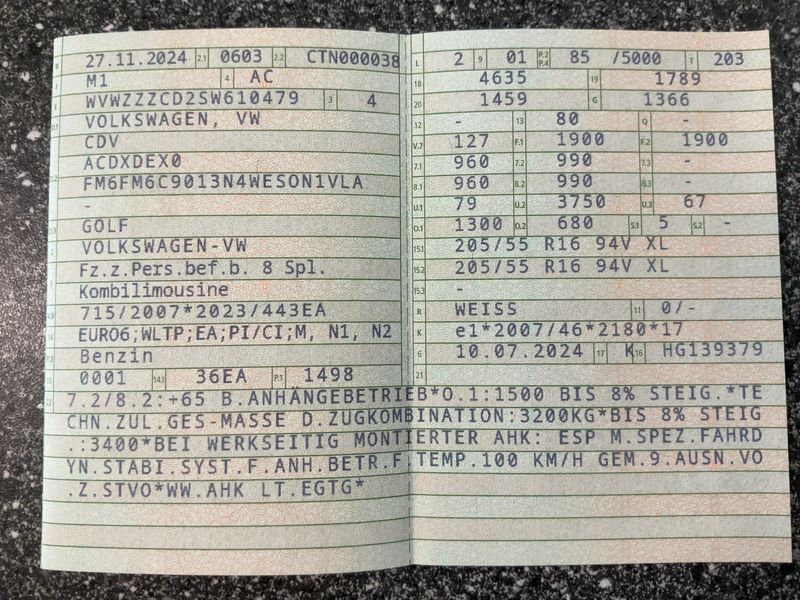 B 27.11.2024 2.1 0603 2.2 CTN000038
J M1 4 AC
E WVWZZZCD2SW610479 3 4
D.1 VOLKSWAGEN, VW
CDV
D.2 ACDXDEX0
FM6FM6C9013N4WESON1VLA
-
D.3 GOLF
2 VOLKSWAGEN-VW
Fz.z.Pers.bef.b. 8 Spl.
5 Kombilimousine
V.9 715/2007*2023/443EA
14 EURO6;WLTP;EA;PI/CI;M, N1, N2
P.3 Benzin
10 0001 14.1 36EA P.1 1498
L 2 9 01 P.2 P.4 85 /5000 T 203
18 4635 19 1789
20 1459 G 1366
12 - 13 80 Q -
V.7 127 F.1 1900 F.2 1900
7.1 960 7.2 990 7.3 -
8.1 960 8.2 990 8.3 -
U.1 79 U.2 3750 U.3 67
O.1 1300 O.2 680 S.1 5 S.2 -
15.1 205/55 R16 94V XL
15.2 205/55 R16 94V XL
15.3 -
R WEISS 11 0/-
K e1*2007/46*2180*17
6 10.07.2024 17 K 16 HG139379
21
22 7.2/8.2:+65 B.ANHÄNGEBETRIEB*O.1:1500 BIS 8% STEIG.*TE
CHN.ZUL.GES-MASSE D.ZUGKOMBINATION:3200KG*BIS 8% STEIG
.:3400*BEI WERKSEITIG MONTIERTER AHK: ESP M.SPEZ.FAHRD
YN.STABI.SYST.F.ANH.BETR.F.TEMP.100 KM/H GEM.9.AUSN.VO
.Z.STVO*WW.AHK LT.EGTG*